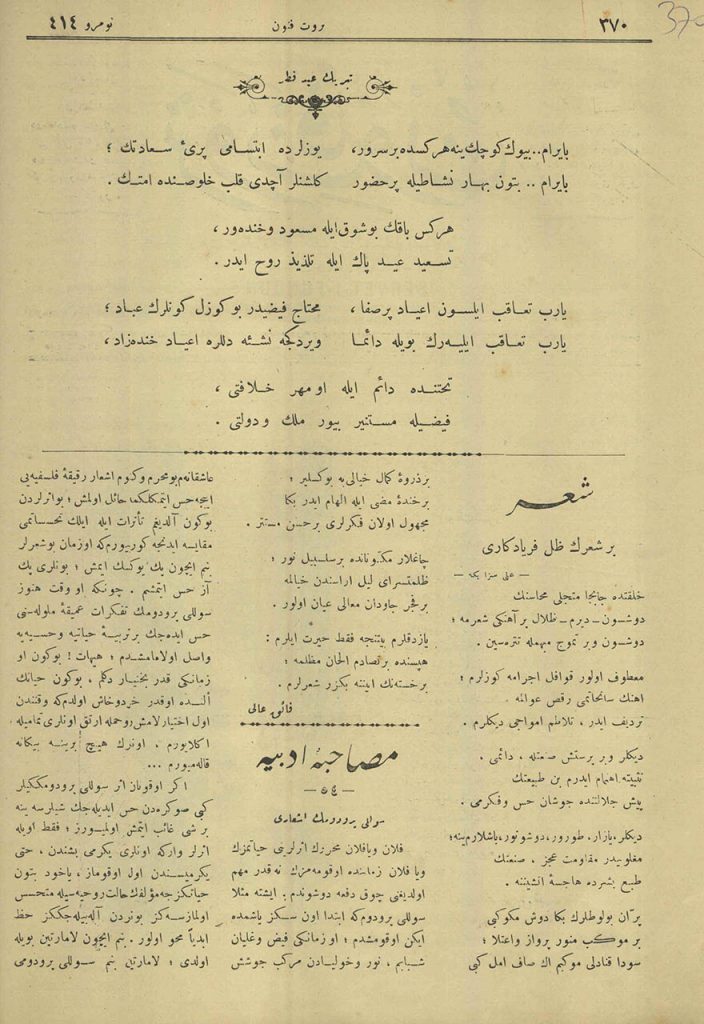 ٣٧٠
ثروت فنون
نومرو ٤١٤
370
تبريك عيد فطر
بايرام.. بيوك كوچك ينه هركسده بر سرور، يوزلرده ابتسامی پریٔ سعادتك ؛
بايرام .. بتون بهار نشاطيله پرحضور كلشنلر آچدی قلب خلوصنده امتك .
هركس باقك بو شوق ايله مسعود و خنده ور ،
تسعيد عيد پاك ايله تلذيذ روح ايدر .
يارب تعاقب ايلسون اعياد پرصفا ، محتاج فيضيدر بو كوزل كونلرك عباد ؛
يارب تعاقب ايليه رك بويله دائما ويردكجه نشئه دللره اعياد خنده زاد ،
تختنده دائم ايله او مهر خلافتی ،
فيضيله مستنير بيور ملك و دولتی .
شعر
بر شعرك ظل فريادكاری
— علی سزا بكه —
خلقتده جابجا متجلی محاسنك
دوشسون_ ديرم_ ظلال پر آهنكی شعرمه ؛
دوشسون و بر تموج مهمله تتره سين .
معطوف اولور قوافل اجرامه كوزلرم ؛
آهنك سانحاتمی رقص عوالمه
ترديف ايدر ، تلاطم امواجی ديكلرم .
ديكلر و بر پرستش صمتله ، دائمی .
تثبيته اهتمام ايدرم بن طبيعتك
پيش جلالتنده جوشان حس و فكرمی .
ديكلر، يازار. طورور، دوشونور، باشلارم ينه؛
مغلوبيدر مقاومت عجز ، صنعتك
طبع بشرده هاجسهٔ
پران بولوطلرك بكا دوش مكوكبی
بر موكب منور پرواز و اعتلا ؛
سودا قنادلی موكبم اك صاف امل كبی
بر ذروهٔ كمال خيالی يه يوكسلير ؛
بر خندهٔ مضی ايله الهام ايدر بكا
مجهول اولان فكرلری بر حسن مستتر .
چاغلار مكنوناتده بر سلسبيل نور ؛
ظلمتسرای ليل اراسندن خيالمه
بر فجر جاودان معالی عيان اولور .
يازدقلرم بيتنجه فقط حيرت ايلرم :
هپسنده بر تصادم الحان مظلمه ؛
بر خسته نك اينينه بكزر شعرلرم .
فائق عالی
مصاحبهٔ ادبيه
— ٤٥ —
سوللی پرودومك اشعاری
فلان ويا فلان محررك اثرلرينی حياتمزك
ويا فلان زماننده اوقومه مزك نه قدر مهم
اولديغنی چوق دفعه دوشوندم . ايشته مثلا
سوللی پرودومی كه ابتدا اون سكز ياشمده
ايكن اوقومشدم ؛ او زمانكی فيض و غليان
شبابم ، نور و خوليادن مركب جوشش
عاشقانه م بو محرم و كزيده اشعار رقيقهٔ فلسفيه يی
اييجه حس ايتمكلكمه حائل اولمش ؛ بو اثرلردن
بوكون آلديغم تأثرات ايله ايلك تحسساتمی
مقايسه ايدنجه كورييورم كه او زمان بو شعرلر
بنم ايچون پك يوكسك ايمش ؛ بونلری پك
آز حس ايتمشم . چونكه او وقت هنوز
سوللی پرودومك تفكرات عميقهٔ ملوله سنی
حس ايده جك بر تربيهٔ حياتيه و حسيه يه
واصل اولامامشدم ؛ هيهات ! بوكون او
زمانكی قدر بختيار دكلم ، بوكون حياتك
النده او قدر خردوخاش اولدم كه وقتندن
اول اختيارلامش روحمله آرتق اونلری تماميله
اكلايورم ، اونرك هيچ برينه بيكانه
قاله ميورم ...
اكر اوقونان اثر سوللی پرودومككيلر
كبی صوكره دن حس ايديله جك شيلرسه ينه
بر شی غائب ايتمش اولميورز ؛ فقط اويله
اثرلر وار كه اونلری يكرمی بشندن ، حتی
يكرميسندن اول اوقوماز ، ياخود بتون
حياتكزجه مؤلفك حالت روحيه سيله متحسس
اولمازسه كز بونردن آله بيله جككز حظ
ابدياً محو اولور . بنم ايچون لامارتين بويله
اولدی ؛ لامارتين بنم سوللی پرودومی